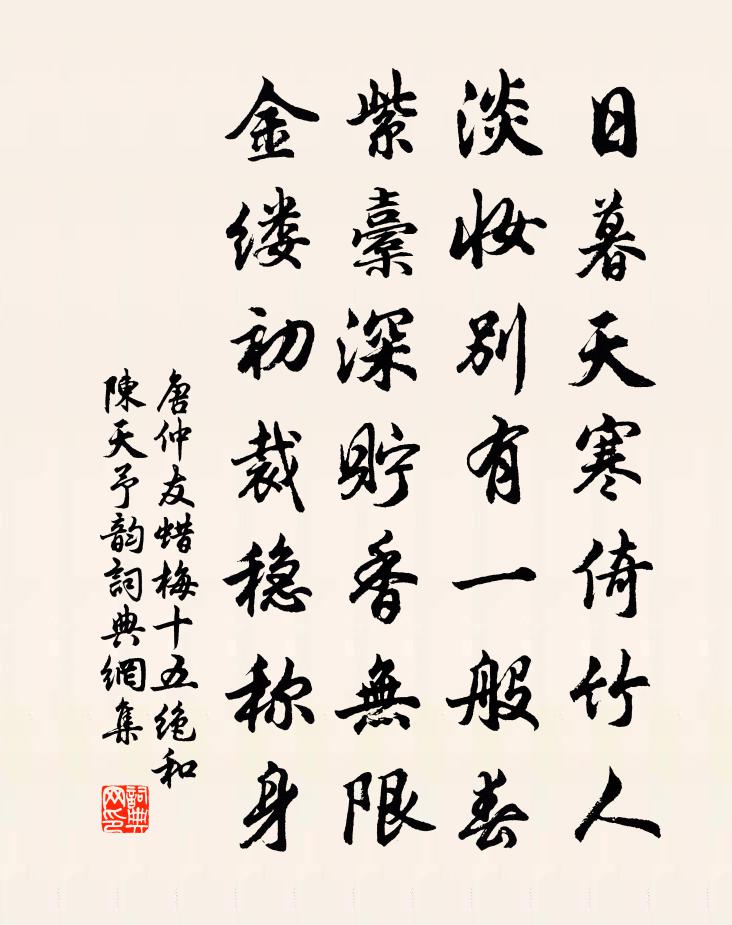 日暮天寒倚竹人
淡妝别有一般春
紫橐深貯香無限
金缕初裁稳称身
唐仲友蜡梅十五绝和
陳天予韵詞典網集
詞典
网印